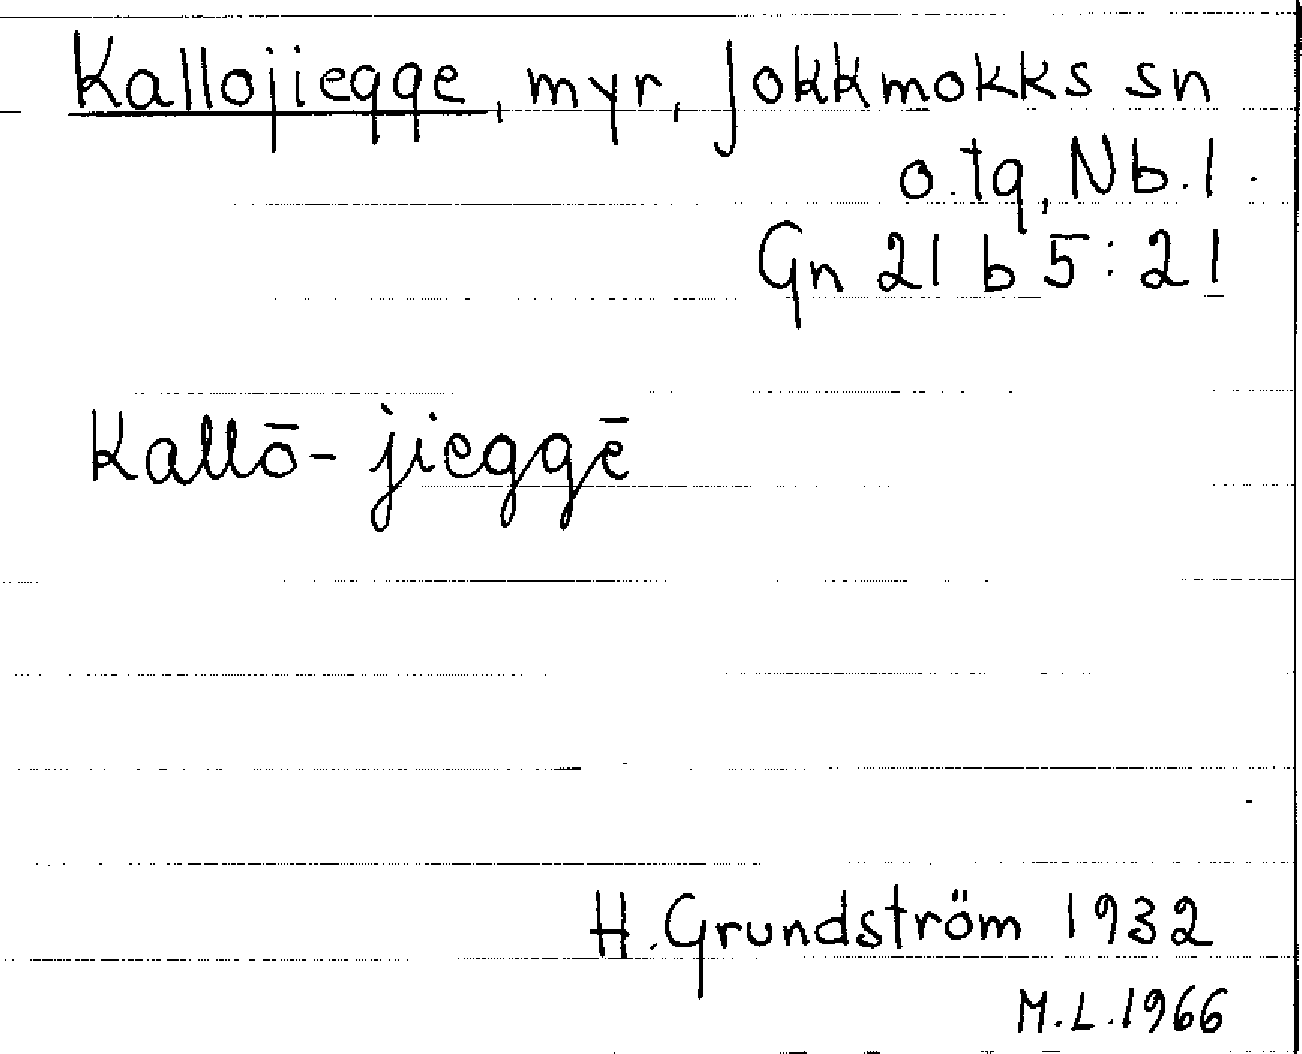 Kallojiegge, myr, Jokkmokks sn
o. tg, Nb. l.
Gn 21 b 5:21
Kallō-jieggē
H. Grundström 1932
M.L. 1966